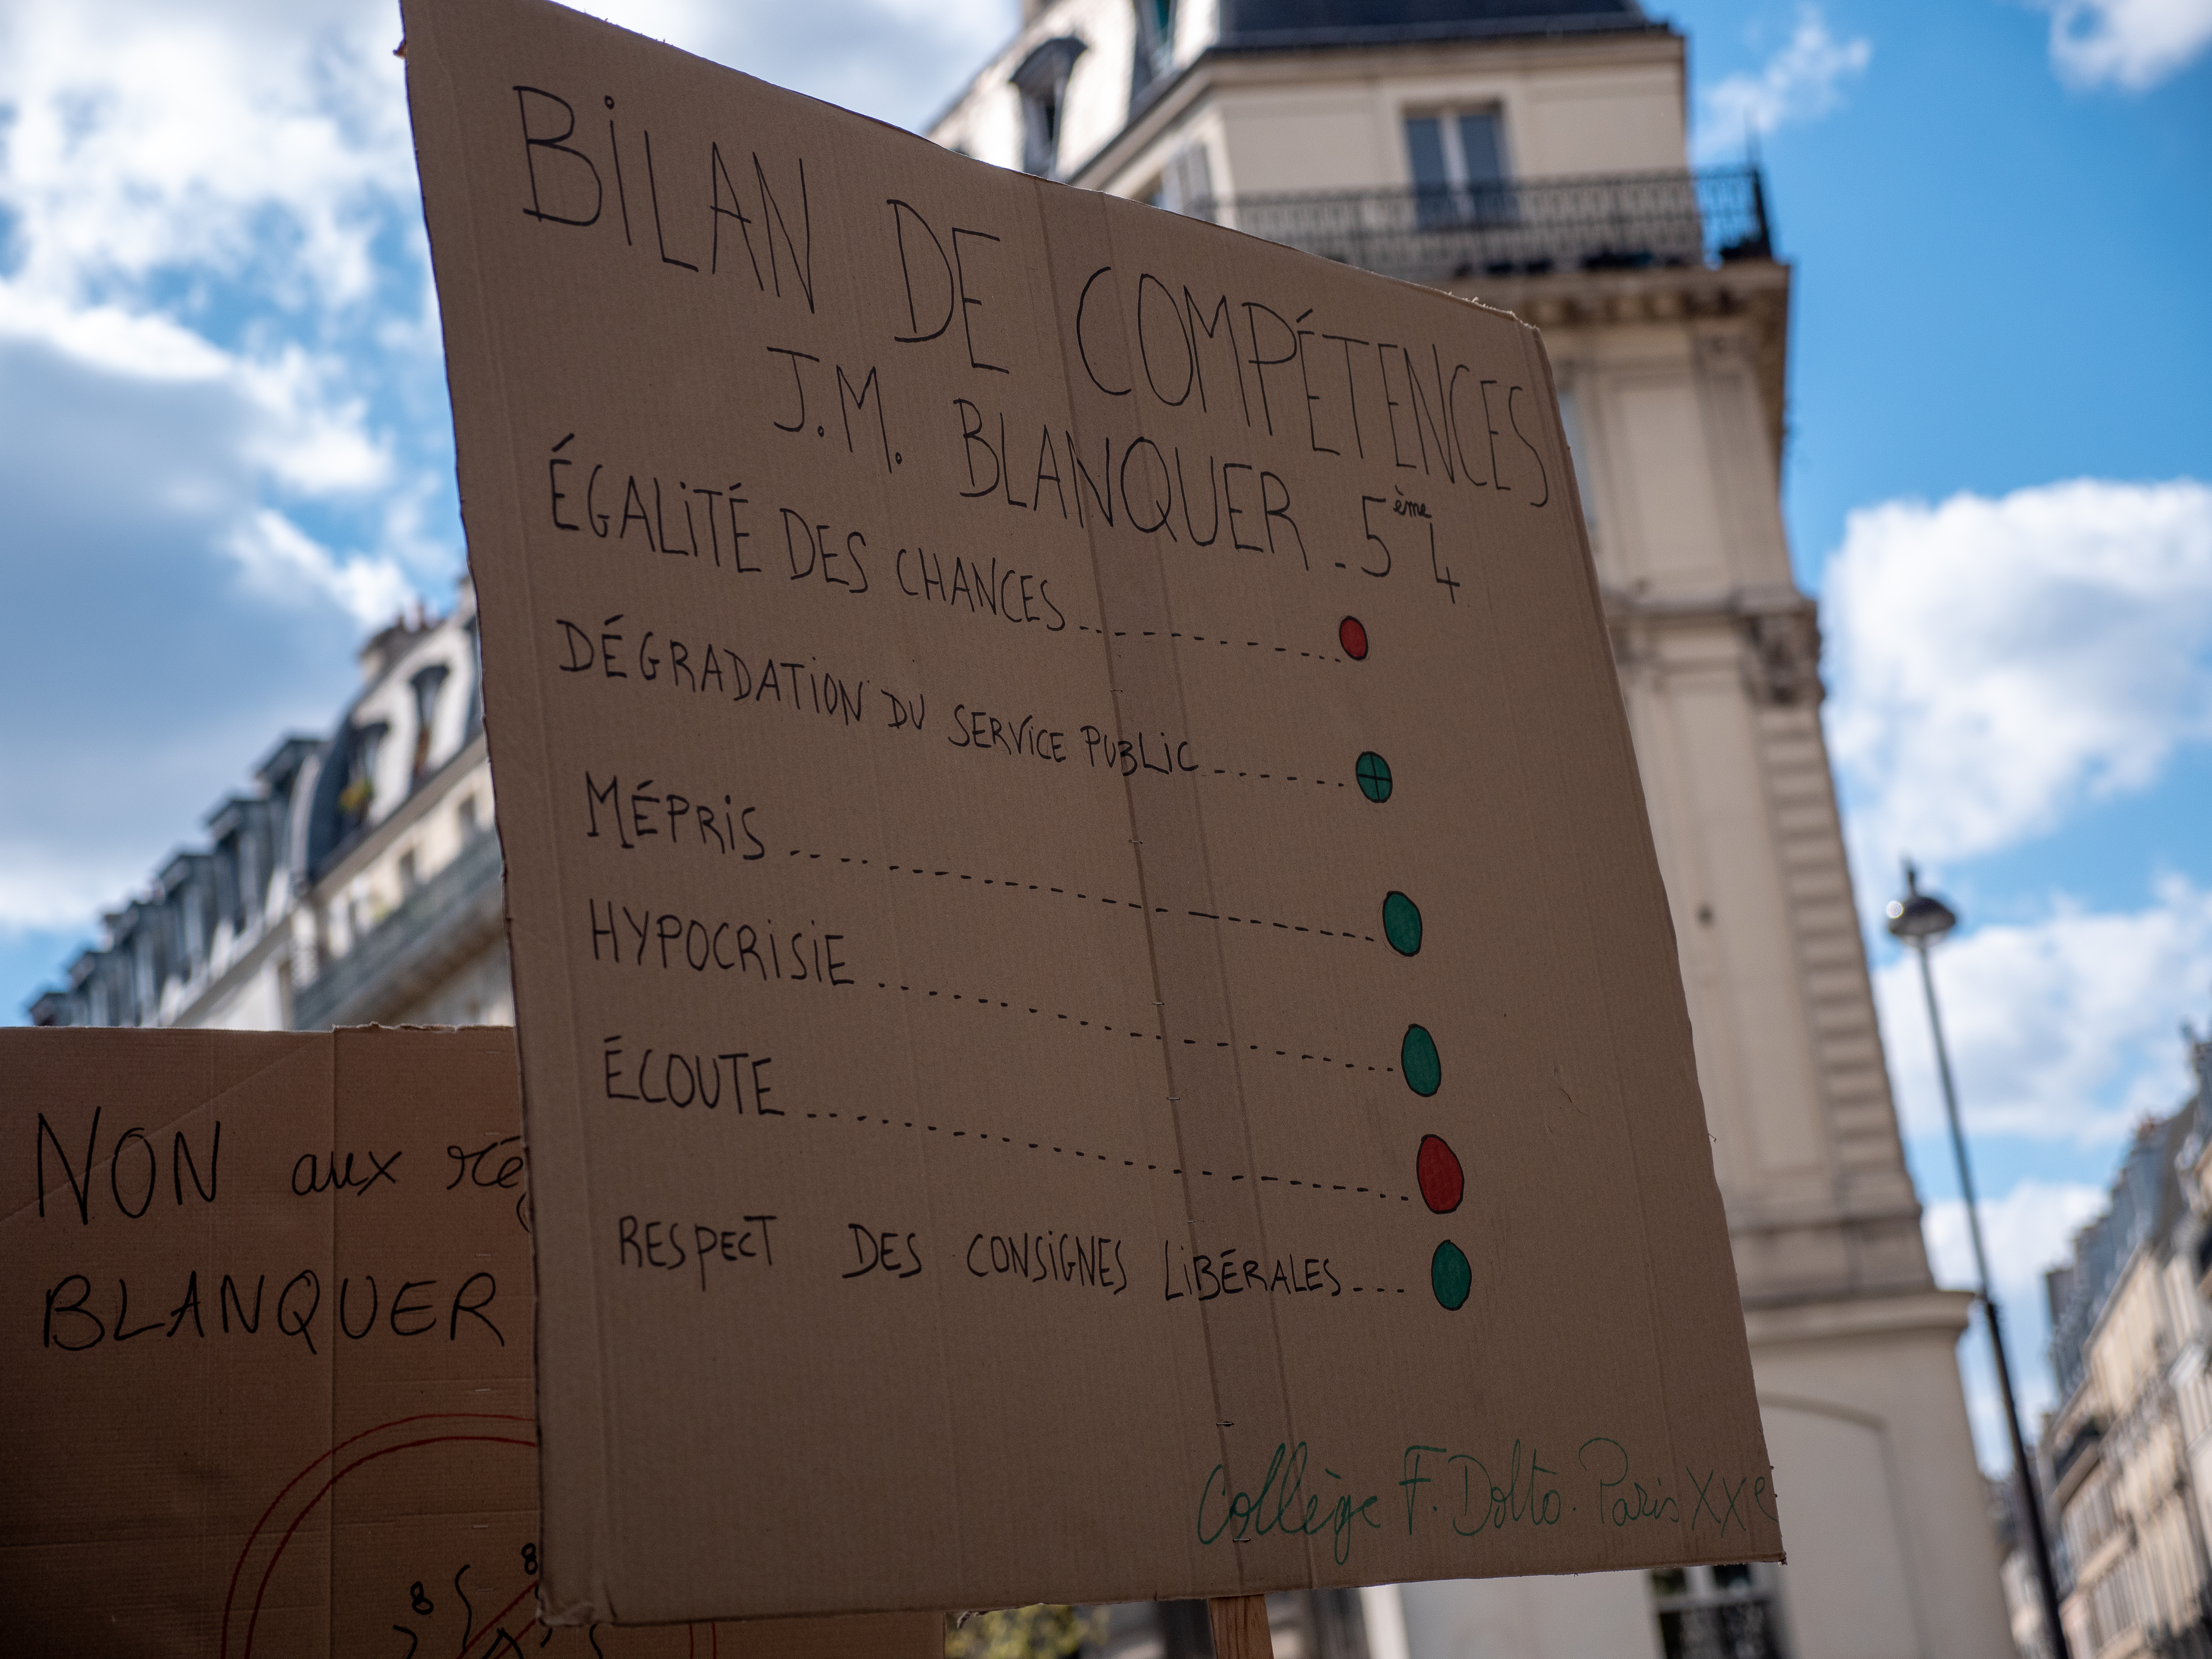 BILAN DE COMPÉTENCES
J.M. BLANQUER - 5ème 4
ÉGALITÉ DES CHANCES
DÉGRADATION DU SERVICE PUBLIC
MÉPRIS
HYPOCRISIE
ÉCOUTE
RESPECT DES CONSIGNES LIBÉRALES
Collège F. Dolto. Paris XXe
NON aux
BLANQUER
8
8